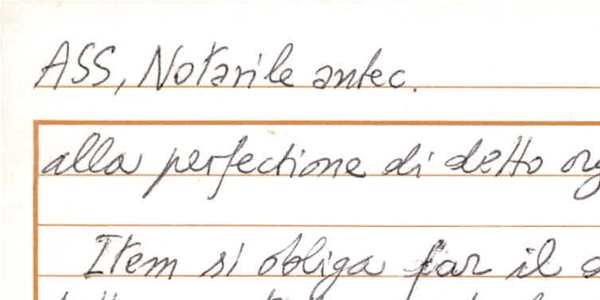 ASS, Notarile antec.
alla perfectione di detto org
Item si obliga far il